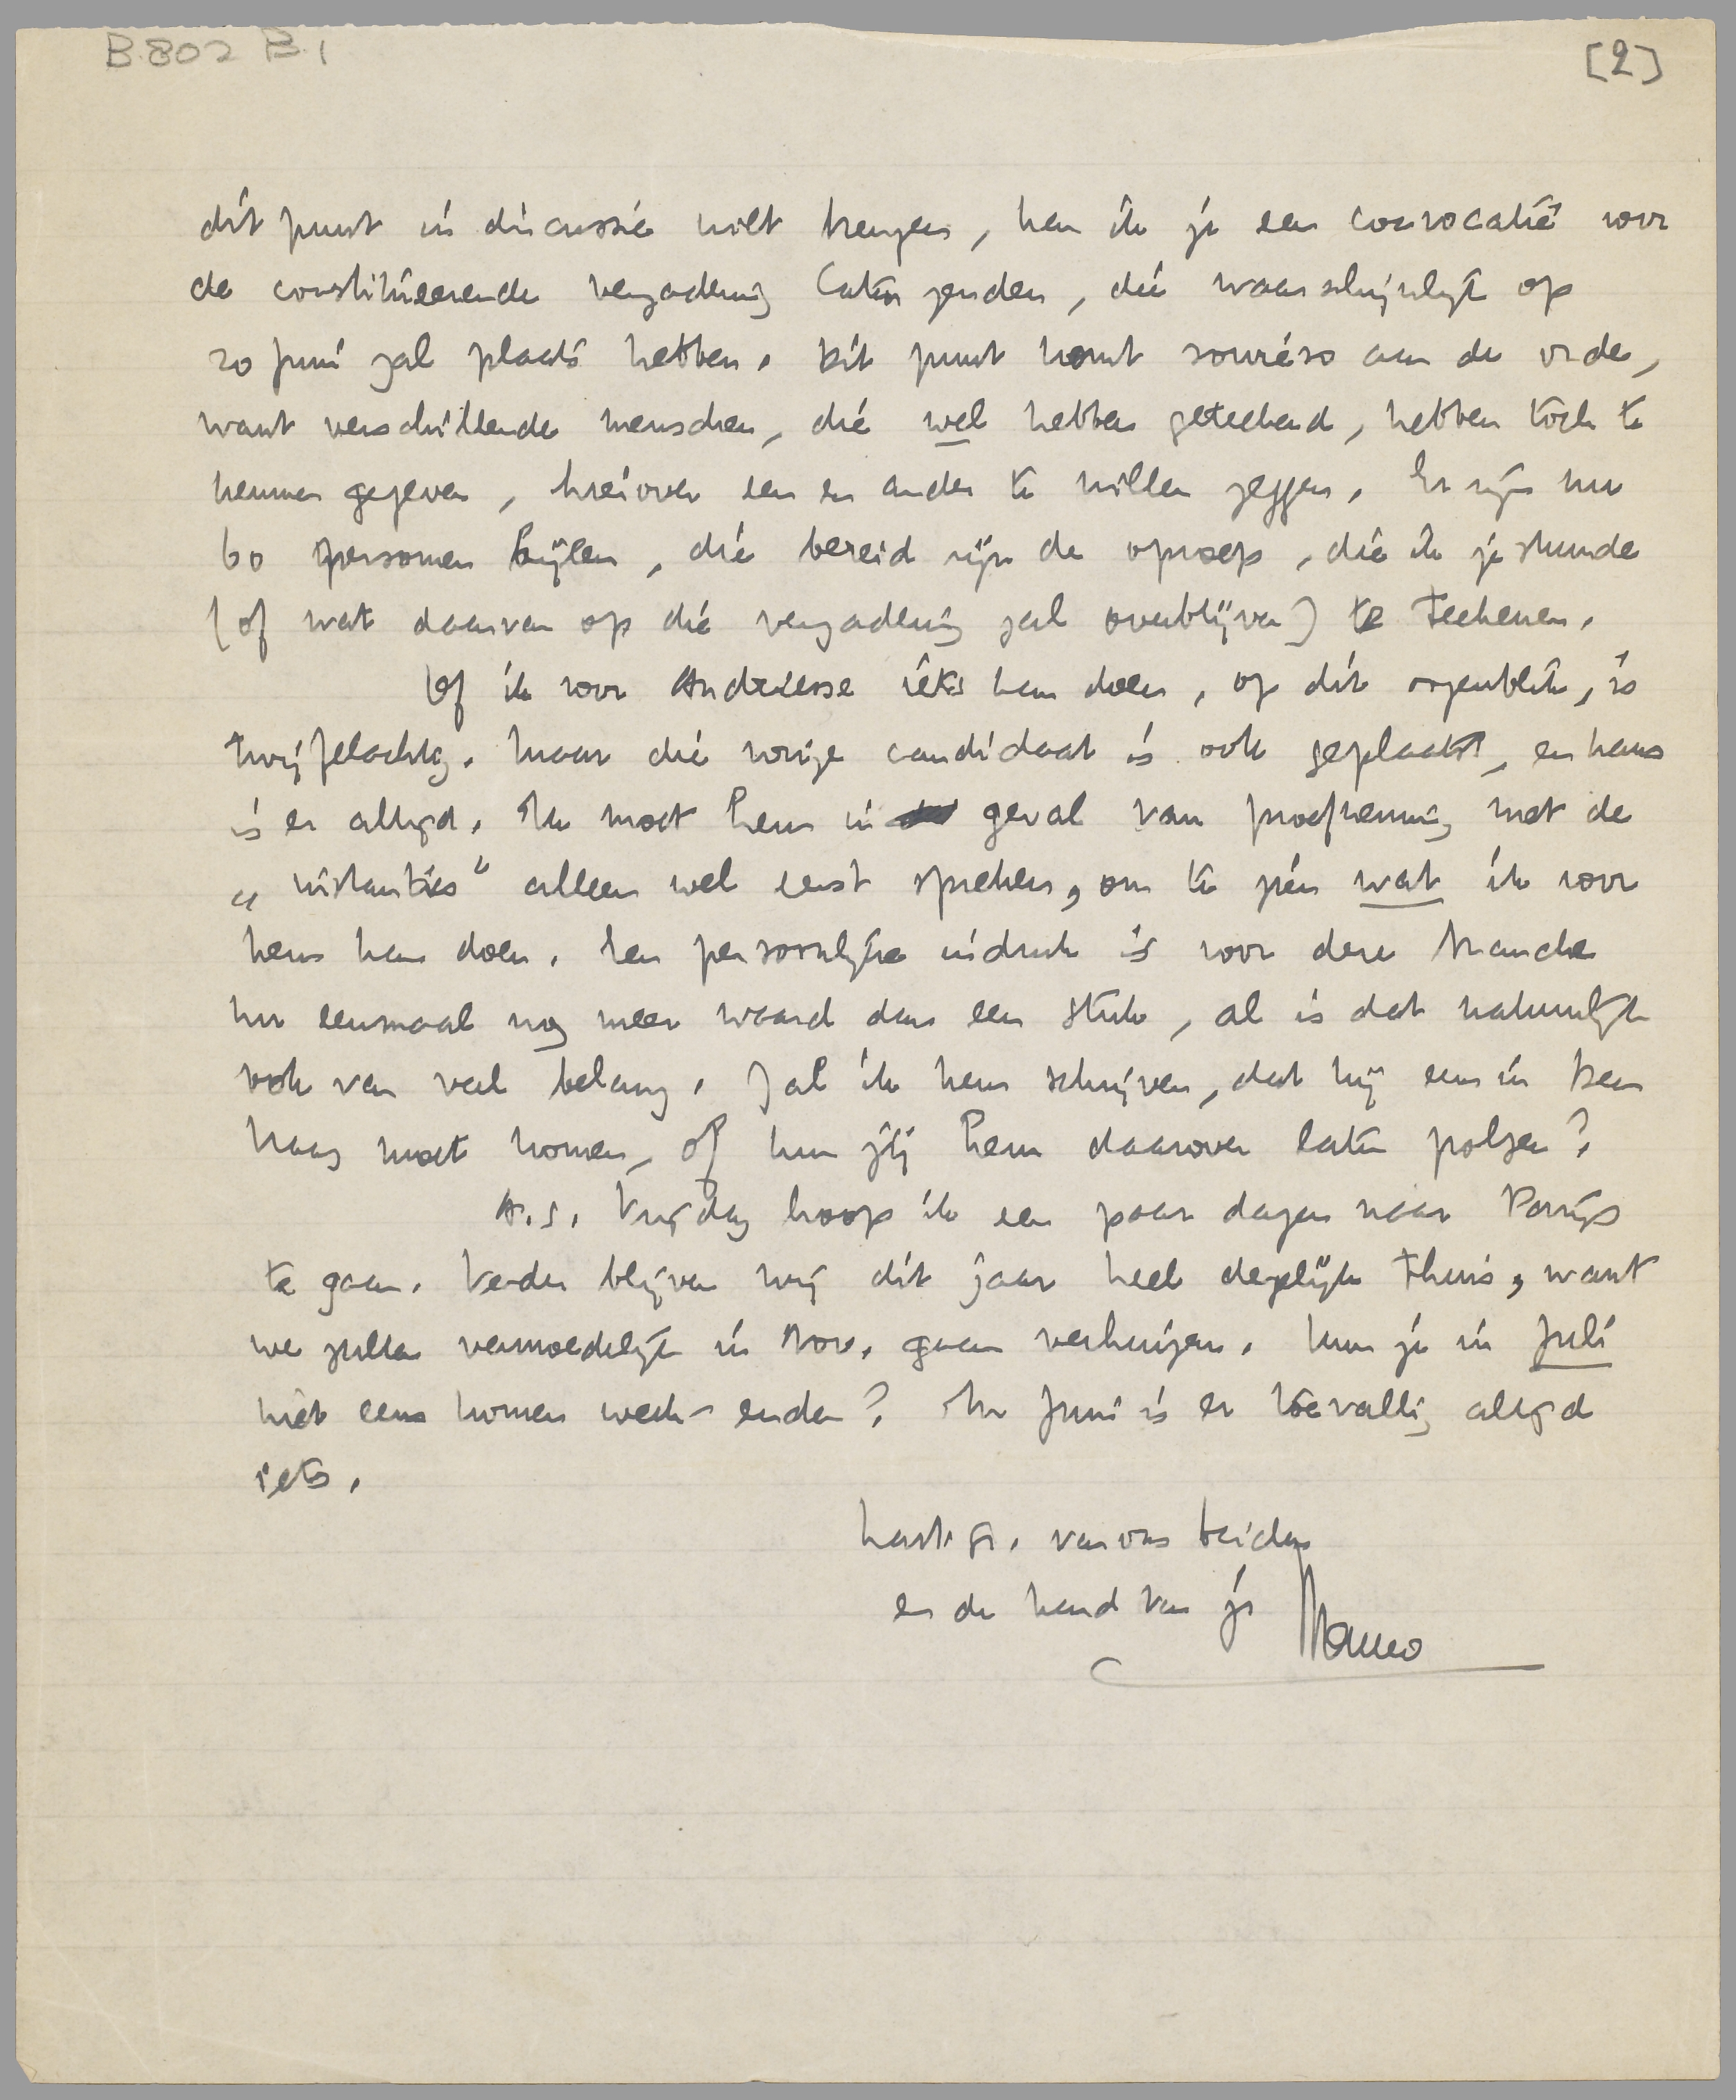 B 802 B 1
[2]
dit punt in discussie wilt brengen, kan ik je een convocatie voor
de constitueerende vergadering laten zenden, die waarschijnlijk op
20 Juni zal plaats hebben. Dit punt komt sowieso aan de orde,
want verschillende menschen, die wel hebben geteekend, hebben toch te
kennen gegeven, hierover een en ander te willen zeggen. Er zijn nu
60 personen bijeen, die bereid zijn de oproep, die ik je stuurde
(of wat daarvan op die vergadering zal overblijven) te teekenen.
Of ik voor Andriesse iets kan doen, op dit oogenblik, is
twijfelachtig. Maar die vorige candidaat is ook geplaatst, en kans
is er altijd. Ik moet hem in geval van proefneming met de
„instanties" alleen wel eerst spreken, om te zien wat ik voor
hem kan doen. Een persoonlijke indruk is voor deze branche
nu eenmaal nog meer waard dan een stuk, al is dat natuurlijk
ook van veel belang. Zal ik hem schrijven, dat hij eens in Den
Haag moet komen, of kun jij hem daarover laten polsen?
A.s. Vrijdag hoop ik een paar dagen naar Parijs
te gaan. Verder blijven wij dit jaar heel degelijk thuis, want
we zullen vermoedelijk in Nov. gaan verhuizen. Kun je in Juli
niet eens komen week-enden? In Juni is er toevallig altijd
iets.
Hart. gr. van ons beiden
en de hand van je Menno